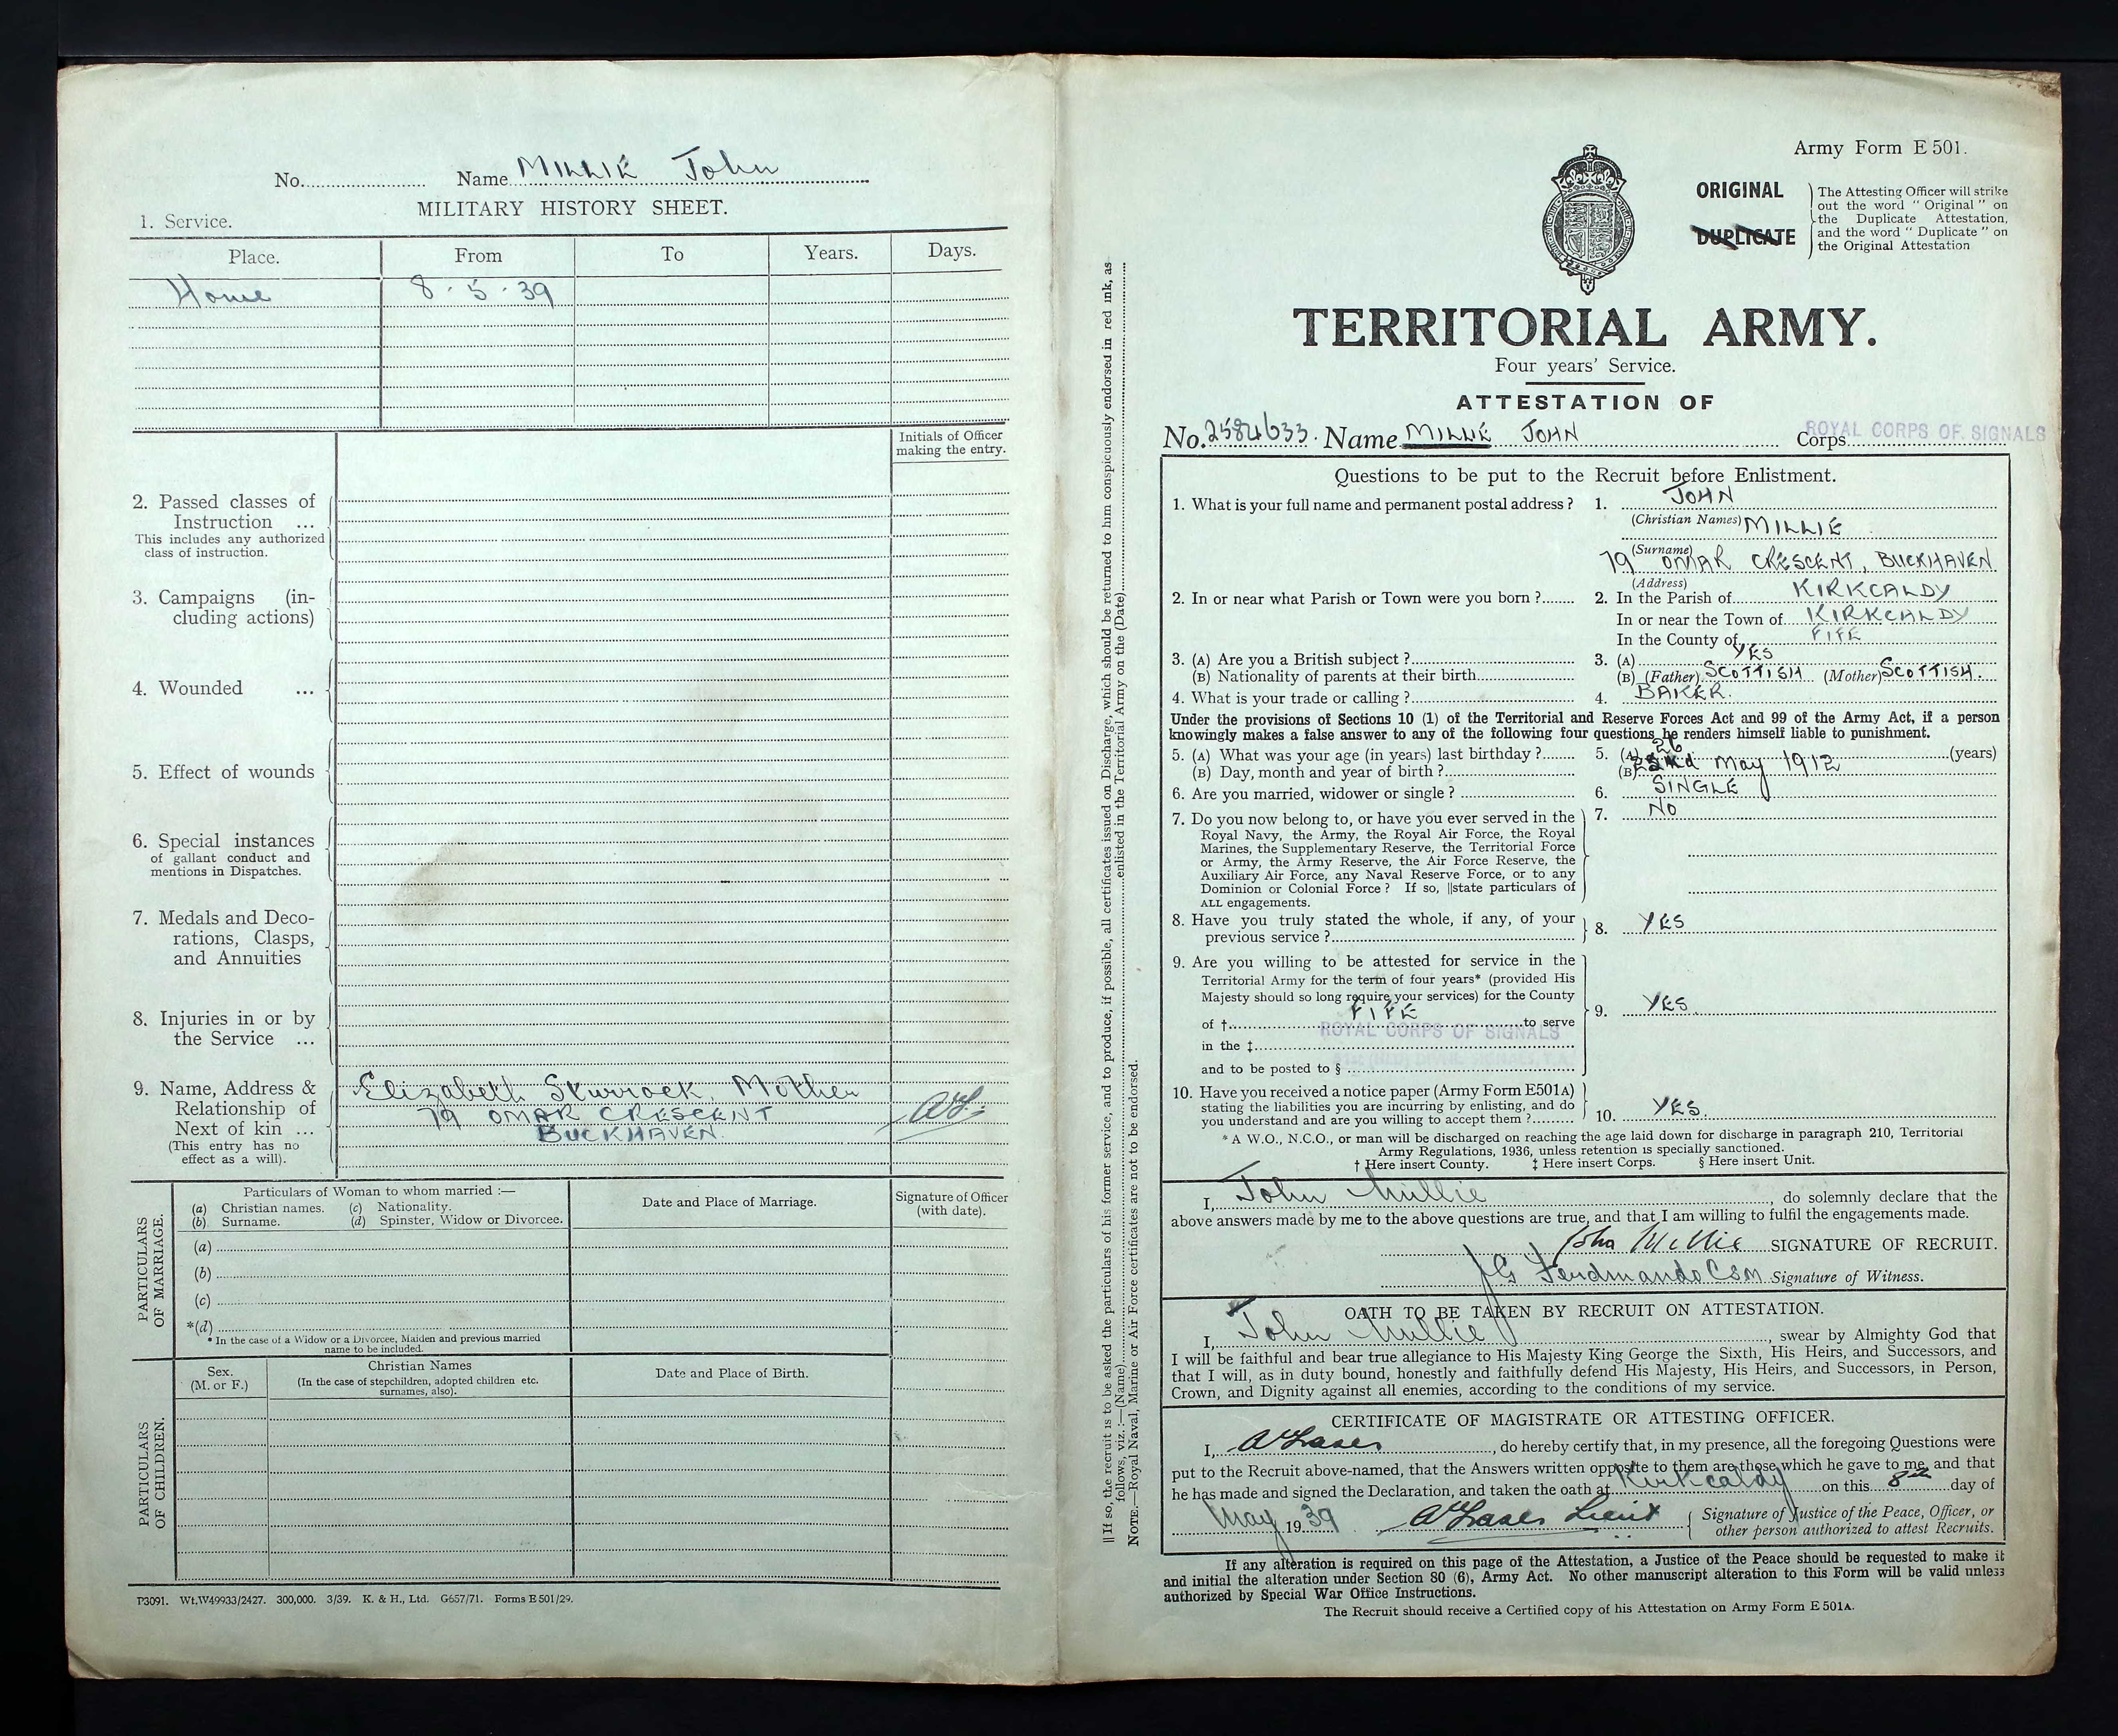 No. Name MILLIE John
MILITARY HISTORY SHEET.
1. Service.
Place. From To Years. Days.
Home 8 . 5 . 39
Initials of Officer
making the entry.
2. Passed classes of
Instruction ...
This includes any authorized
class of instruction.
3. Campaigns (in-
cluding actions)
4. Wounded ...
5. Effect of wounds
6. Special instances
of gallant conduct and
mentions in Dispatches.
7. Medals and Deco-
rations, Clasps,
and Annuities
8. Injuries in or by
the Service ...
9. Name, Address &
Relationship of
Next of kin ...
(This entry has no
effect as a will).
Elizabeth Sturrock. Mother
79 OMAR CRESCENT
BUCKHAVEN.
PARTICULARS
OF MARRIAGE.
Particulars of Woman to whom married :—
(a) Christian names. (c) Nationality.
(b) Surname. (d) Spinster, Widow or Divorcee.
Date and Place of Marriage.
Signature of Officer
(with date).
(a)
(b)
(c)
*(d)
* In the case of a Widow or a Divorcee, Maiden and previous married
name to be included.
PARTICULARS
OF CHILDREN.
Sex.
(M. or F.)
Christian Names
(In the case of stepchildren, adopted children etc.
surnames, also).
Date and Place of Birth.
P3091. Wt.W49933/2427. 300,000. 3/39. K. & H., Ltd. G657/71. Forms E501/29.
|| If so, the recruit is to be asked the particulars of his former service, and to produce, if possible, all certificates issued on Discharge, which should be returned to him conspicuously endorsed in red ink, as
follows, viz. :—(Name) enlisted in the Territorial Army on the (Date)
NOTE.—Royal Naval, Marine or Air Force certificates are not to be endorsed.
Army Form E 501.
ORIGINAL
DUPLICATE
The Attesting Officer will strike
out the word "Original" on
the Duplicate Attestation,
and the word "Duplicate" on
the Original Attestation
TERRITORIAL ARMY.
Four years' Service.
ATTESTATION OF
No. 2584633. Name MILLIE JOHN Corps ROYAL CORPS OF SIGNALS
Questions to be put to the Recruit before Enlistment.
1. What is your full name and permanent postal address ? 1. JOHN
(Christian Names) MILLIE
(Surname)
79 OMAR CRESCENT, BUCKHAVEN
(Address)
2. In or near what Parish or Town were you born ? 2. In the Parish of KIRKCALDY
In or near the Town of KIRKCALDY
In the County of FIFE
3. (A) Are you a British subject ? 3. (A) YES
(B) Nationality of parents at their birth (B) (Father) SCOTTISH (Mother) SCOTTISH.
4. What is your trade or calling ? 4. BAKER.
Under the provisions of Sections 10 (1) of the Territorial and Reserve Forces Act and 99 of the Army Act, if a person
knowingly makes a false answer to any of the following four questions, he renders himself liable to punishment.
5. (A) What was your age (in years) last birthday ? 5. (A) 26 (years)
(B) Day, month and year of birth ? (B) May 1912
6. Are you married, widower or single ? 6. SINGLE
7. Do you now belong to, or have you ever served in the 7. NO
Royal Navy, the Army, the Royal Air Force, the Royal
Marines, the Supplementary Reserve, the Territorial Force
or Army, the Army Reserve, the Air Force Reserve, the
Auxiliary Air Force, any Naval Reserve Force, or to any
Dominion or Colonial Force ? If so, ||state particulars of
ALL engagements.
8. Have you truly stated the whole, if any, of your
previous service ? 8. YES
9. Are you willing to be attested for service in the
Territorial Army for the term of four years* (provided His
Majesty should so long require your services) for the County
of † FIFE to serve 9. YES.
in the ‡ ROYAL CORPS OF SIGNALS
and to be posted to §
10. Have you received a notice paper (Army Form E501A)
stating the liabilities you are incurring by enlisting, and do
you understand and are you willing to accept them ? 10. YES.
* A W.O., N.C.O., or man will be discharged on reaching the age laid down for discharge in paragraph 210, Territorial
Army Regulations, 1936, unless retention is specially sanctioned.
† Here insert County. ‡ Here insert Corps. § Here insert Unit.
I, John Millie, do solemnly declare that the
above answers made by me to the above questions are true, and that I am willing to fulfil the engagements made.
John Millie SIGNATURE OF RECRUIT.
CSM Signature of Witness.
OATH TO BE TAKEN BY RECRUIT ON ATTESTATION.
I, John Millie, swear by Almighty God that
I will be faithful and bear true allegiance to His Majesty King George the Sixth, His Heirs, and Successors, and
that I will, as in duty bound, honestly and faithfully defend His Majesty, His Heirs, and Successors, in Person,
Crown, and Dignity against all enemies, according to the conditions of my service.
CERTIFICATE OF MAGISTRATE OR ATTESTING OFFICER.
I, A Fraser, do hereby certify that, in my presence, all the foregoing Questions were
put to the Recruit above-named, that the Answers written opposite to them are those which he gave to me, and that
he has made and signed the Declaration, and taken the oath at Kirkcaldy on this 8th day of
May 1939 A Fraser Lieut Signature of Justice of the Peace, Officer, or
other person authorized to attest Recruits.
If any alteration is required on this page of the Attestation, a Justice of the Peace should be requested to make it
and initial the alteration under Section 80 (6), Army Act. No other manuscript alteration to this Form will be valid unless
authorized by Special War Office Instructions.
The Recruit should receive a Certified copy of his Attestation on Army Form E 501A.